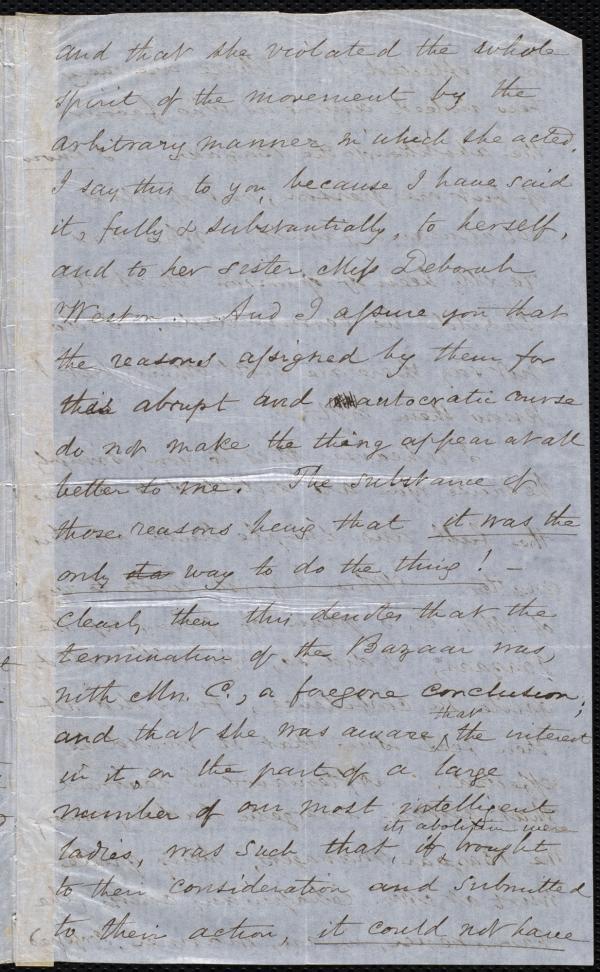 and that she violated the whole
spirit of the movement by the
arbitrary manner in which she acted.
I say this to you, because I have said
it, fully & substantially, to herself,
and to her sister Miss Deborah
Weston. And I assure you that
the reasons assigned by them for
their abrupt and autocratic course
do not make the thing appear at all
better to me. The substance of
those reasons being that it was the
only way to do the thing! –
Clearly then this denotes that the
termination of the Bazaar was,
with Mrs. C., a foregone conclusion;
and that she was aware that the interest
in it, on the part of a large
number of our most intelligent
ladies, was such that, if its abolition were brought
to their consideration and submitted
to their action, it could not have